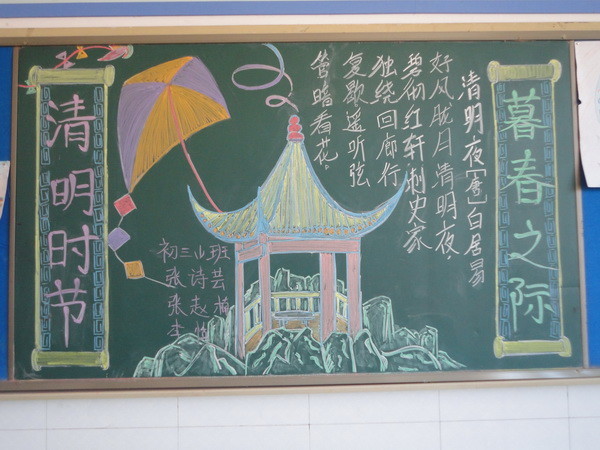 暮春之际
清明夜[唐]白居易
好风胧月清明夜。
碧彻红轩刺史家
独绕回廊行
复歇遥听弦
管暗看花。
清明时节
初三 班
张诗芸
张赵